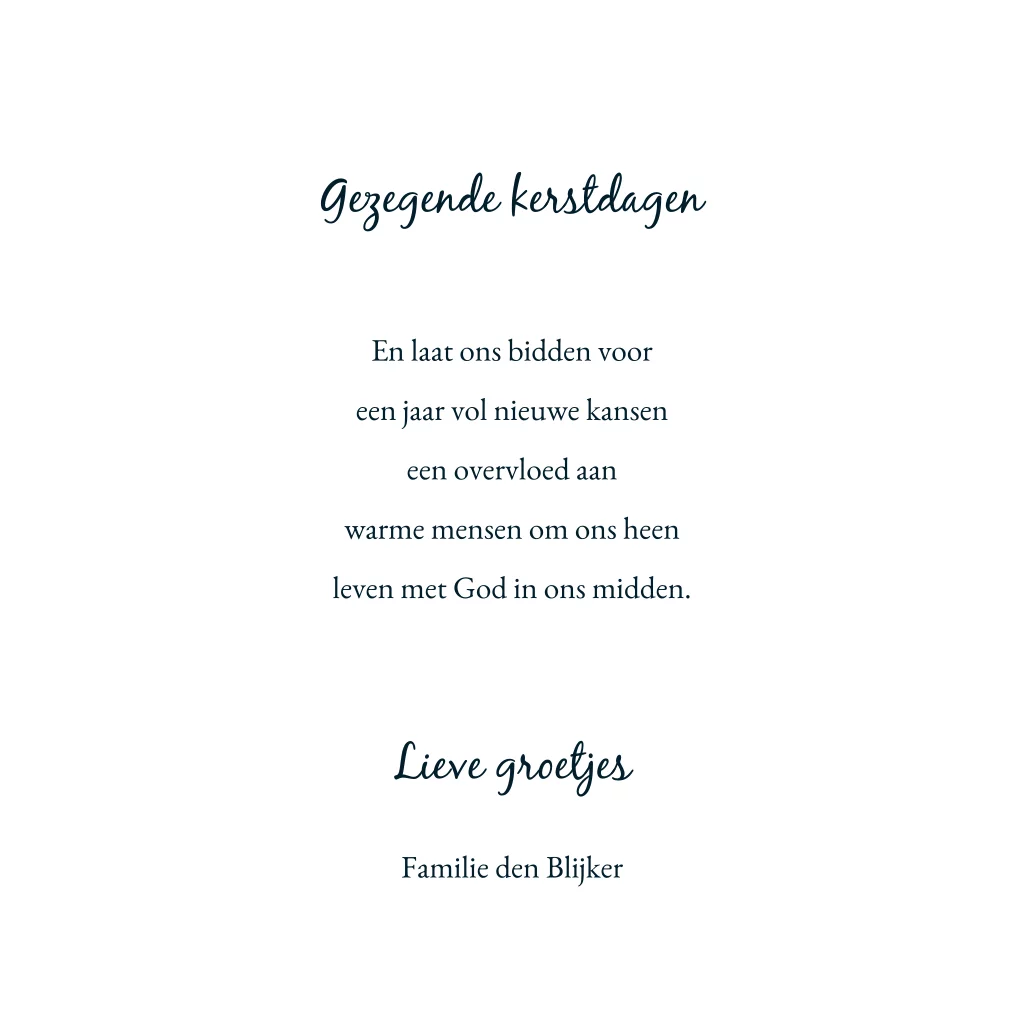 Gezegende kerstdagen
En laat ons bidden voor
een jaar vol nieuwe kansen
een overvloed aan
warme mensen om ons heen
leven met God in ons midden.
Lieve groetjes
Familie den Blijker